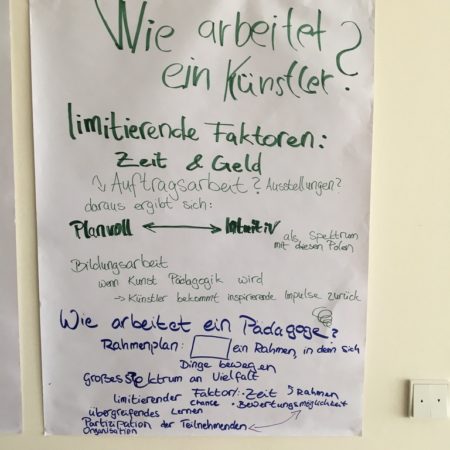 Wie arbeitet
ein Künstler?
limitierende Faktoren:
Zeit & Geld
↳ Auftragsarbeit? Ausstellungen?
daraus ergibt sich:
Planvoll ⟷ Intuitiv als Spektrum
mit diesen Polen
Bildungsarbeit
wenn Kunst Pädagogik wird
→ Künstler bekommt inspirierende Impulse zurück
Wie arbeitet ein Pädagoge?
Rahmenplan: ein Rahmen, in dem sich
Dinge bewegen
Großes Spektrum an Vielfalt
limitierender Faktor: Zeit Rahmen
Chance • Bewertungsmöglichkeit
übergreifendes Lernen
Partizipation der Teilnehmenden
Organisation